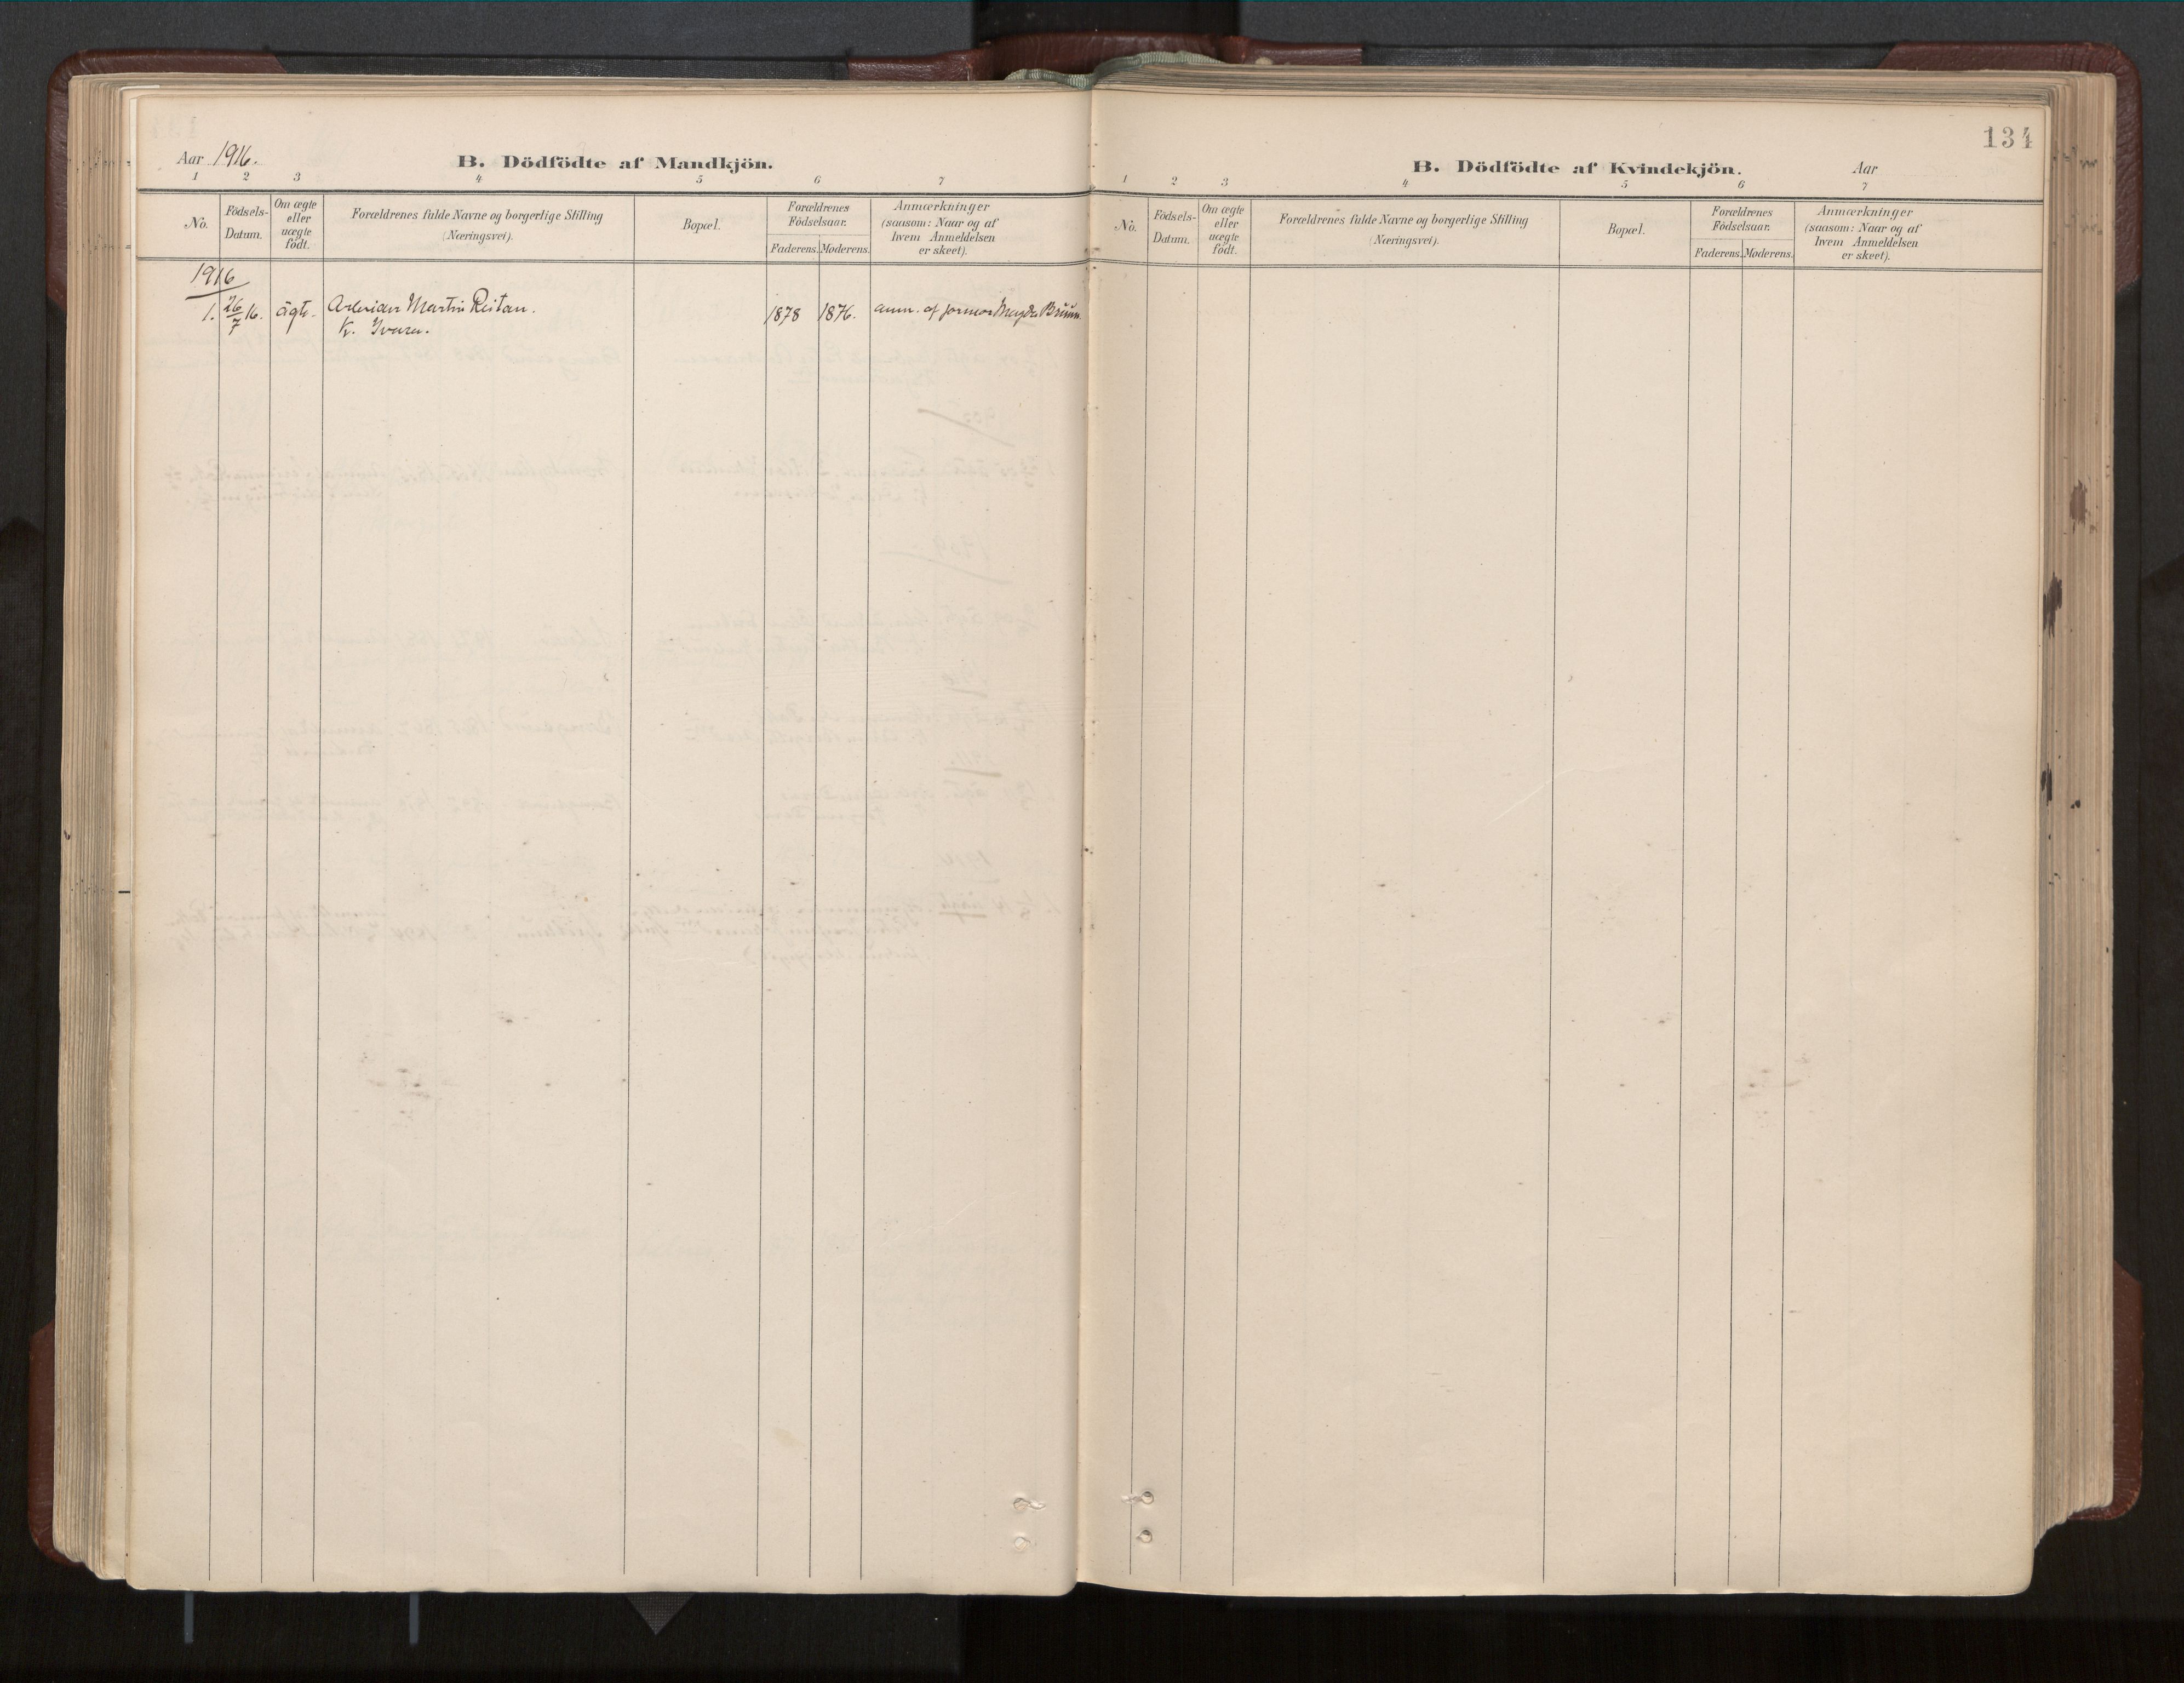 134
Aar 1916.
B. Dödfödte af Mandkjön.
1 2 3 4 5 6 7
No.
Födsels-
Datum.
Om ægte
eller
uægte
födt.
Forældrenes fulde Navne og borgerlige Stilling
(Næringsvei).
Bopæl.
Forældrenes
Födselsaar.
Faderens. Moderens.
Anmærkninger
(saasom: Naar og af
hvem Anmeldelsen
er skeet).
1916
1. 26/7 16. ägte. Martin Reitan. 1878 1876. anm. af jormor Magda Bruun
K.
B. Dödfödte af Kvindekjön.
Aar
1 2 3 4 5 6 7
No.
Födsels-
Datum.
Om ægte
eller
uægte
födt.
Forældrenes fulde Navne og borgerlige Stilling
(Næringsvei).
Bopæl.
Forældrenes
Födselsaar.
Faderens. Moderens.
Anmærkninger
(saasom: Naar og af
hvem Anmeldelsen
er skeet).